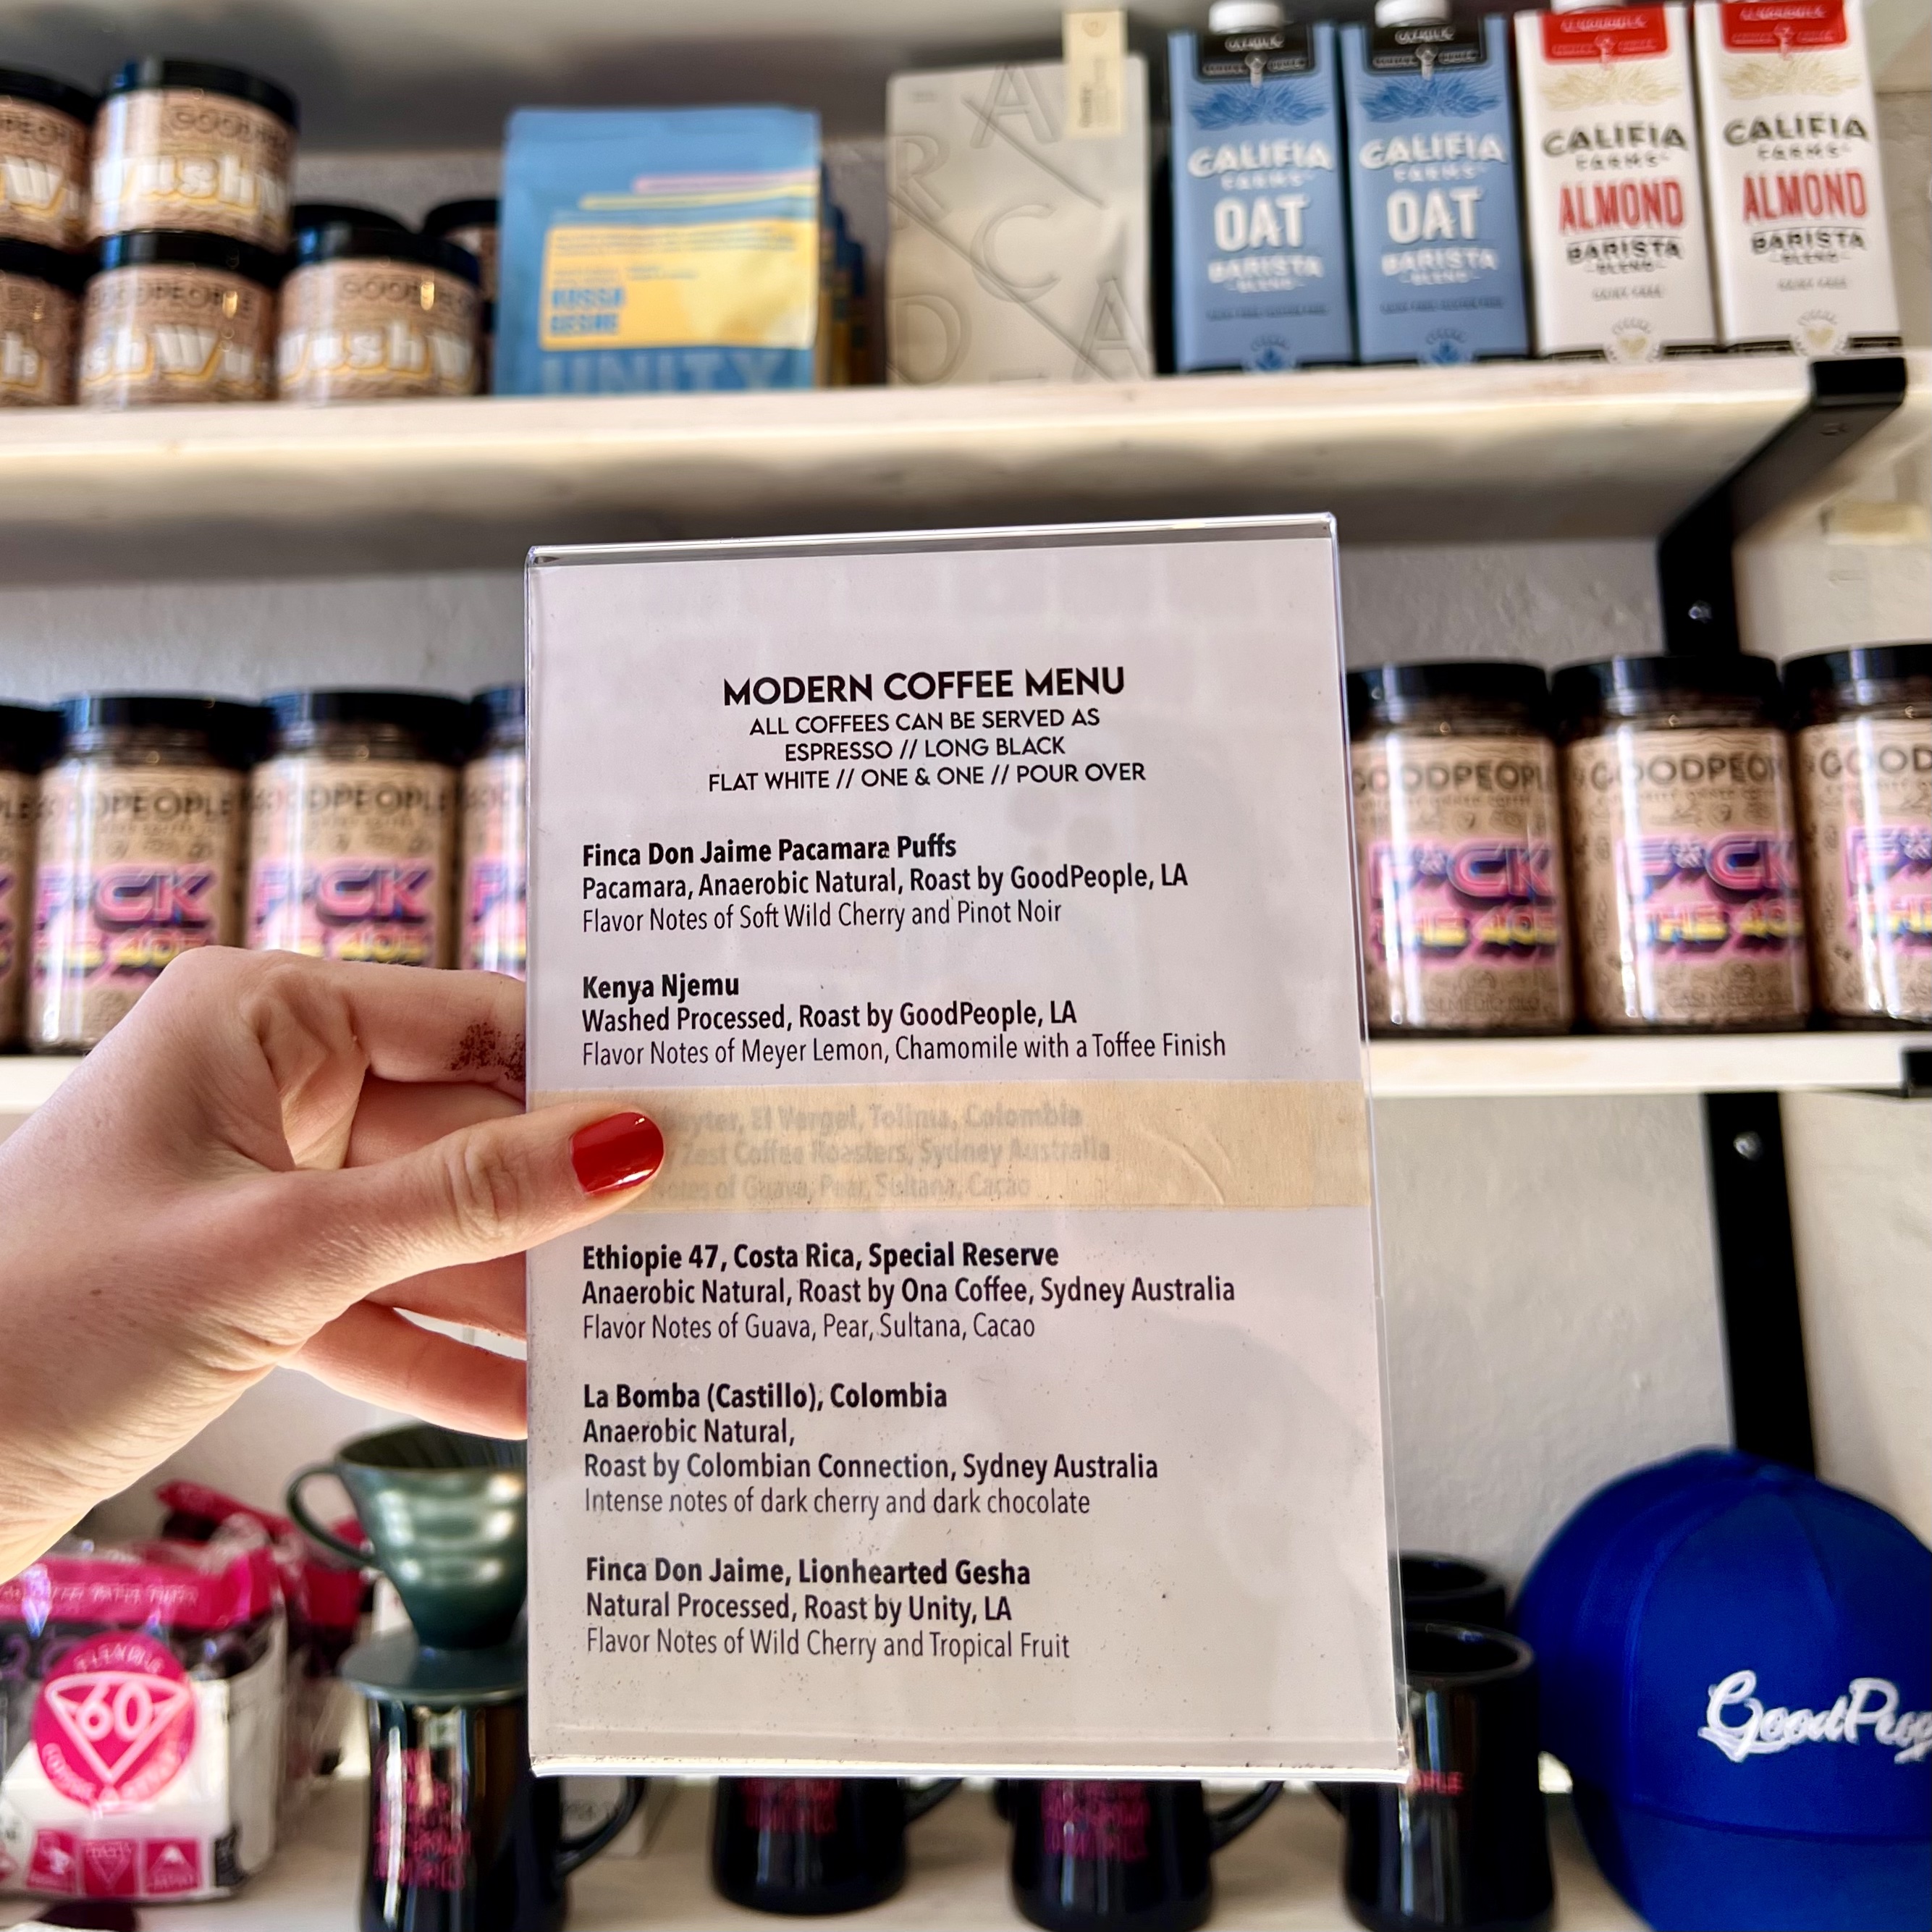 GOODPEOPLE
UNITY
CALIFIA
FARMS
OAT
BARISTA
BLEND
CALIFIA
FARMS
OAT
BARISTA
BLEND
CALIFIA
FARMS
ALMOND
BARISTA
BLEND
CALIFIA
FARMS
ALMOND
BARISTA
BLEND
MODERN COFFEE MENU
ALL COFFEES CAN BE SERVED AS
ESPRESSO // LONG BLACK
FLAT WHITE // ONE & ONE // POUR OVER
Finca Don Jaime Pacamara Puffs
Pacamara, Anaerobic Natural, Roast by GoodPeople, LA
Flavor Notes of Soft Wild Cherry and Pinot Noir
Kenya Njemu
Washed Processed, Roast by GoodPeople, LA
Flavor Notes of Meyer Lemon, Chamomile with a Toffee Finish
El Vergel, Tolima, Colombia
Zest Coffee Roasters, Sydney Australia
Notes of Guava, Pear, Sultana, Cacao
Ethiopie 47, Costa Rica, Special Reserve
Anaerobic Natural, Roast by Ona Coffee, Sydney Australia
Flavor Notes of Guava, Pear, Sultana, Cacao
La Bomba (Castillo), Colombia
Anaerobic Natural,
Roast by Colombian Connection, Sydney Australia
Intense notes of dark cherry and dark chocolate
Finca Don Jaime, Lionhearted Gesha
Natural Processed, Roast by Unity, LA
Flavor Notes of Wild Cherry and Tropical Fruit
GOODPEOPL
F*CK
THE 405
GOODPEOP
F*CK
THE 405
60
GoodPeop